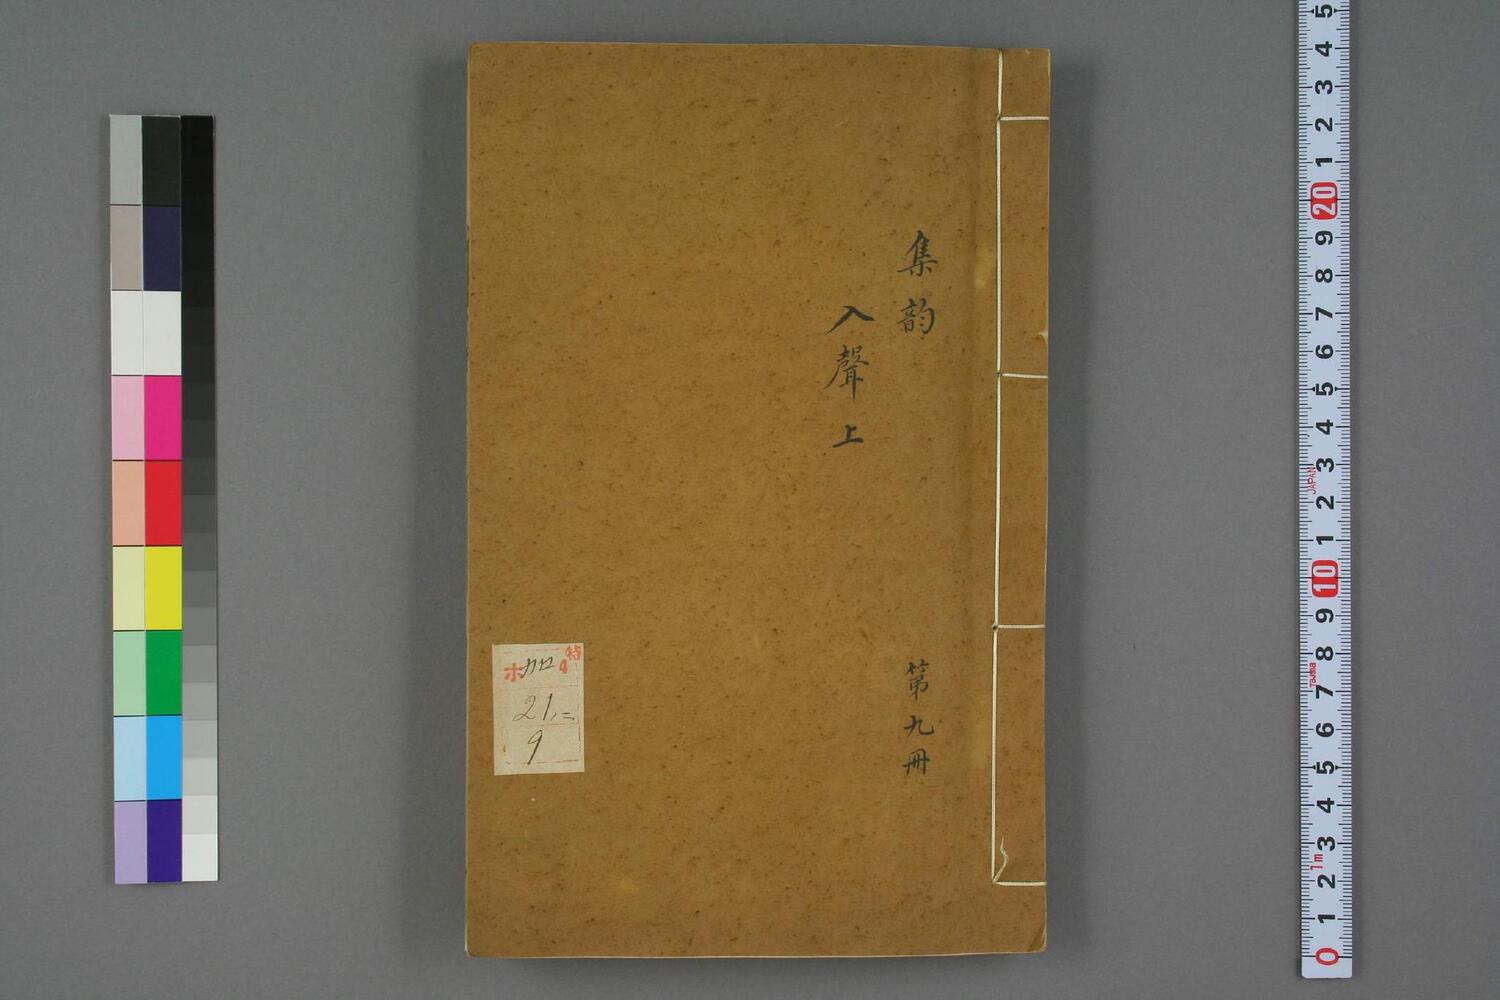 集韵
入聲上
第九冊
特
ホ加4
21,二
9
5
4
3
2
1
20
9
8
7
6
5
4
3
2
1
10
9
8
7
6
5
4
3
2
1
0
JAPAN
Tajima
1m